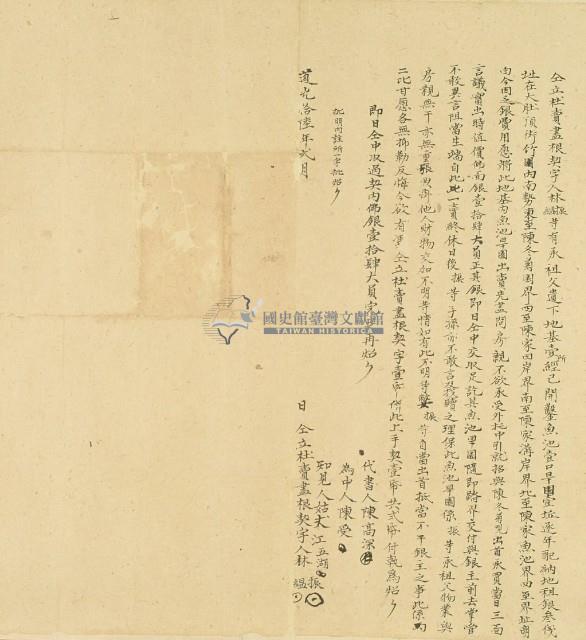 仝立杜賣盡根契字人林振縕等有承祖父遺下地基壹所經已開鑿魚池壹口旱園壹坵逐年配納地租銀叁伐
址在大肚頂街竹圍內南勢東至陳冬勇園界西至陳家田岸界南至陳家溝岸界北至陳家魚池界四至界址明
白今因乏銀費用愿將此地基內魚池旱園出賣先盡問房親不欲承受外托中引就招與陳冬勇出首承買當日三面
言議賣出時值價佛面銀壹拾肆大員正其銀即日仝中交收足訖其魚池旱園隨即踏界交付與銀主前去掌管
不敢異言阻當生端自此一賣終休日後振等子孫亦不敢言及找贖之理保此魚池旱園係振等承祖父物業與
房親無干亦無重張典掛他人財物交加不明等情如有此不明等弊振等自當出首抵當不干銀主之事此係両
二比甘愿各無抑勒反悔今欲有憑仝立杜賣盡根契字壹帋併此上手契壹帋共弍帋付執為炤
即日仝中收過契內佛銀壹拾肆大員完足再炤
批明內註所一字批炤
代書人陳高深
為中人陳受
知見人姑丈江五湖
道光拾陸年弍月 日仝立杜賣盡根契字人林振縕
國史館臺灣文獻館
TAIWAN HISTORICA